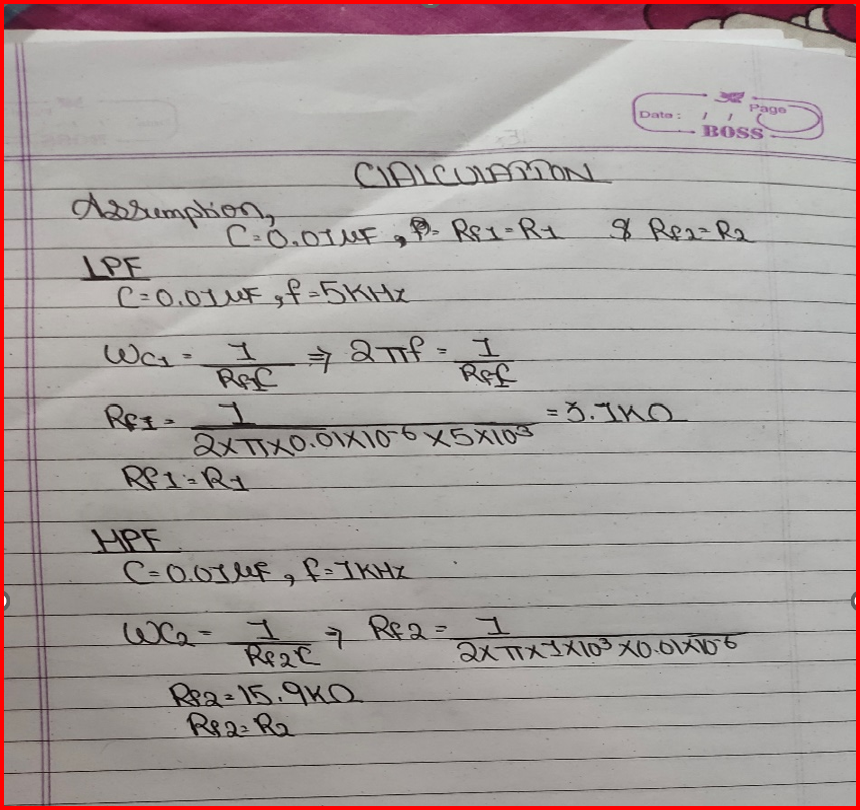 Date: / / Page
BOSS
CALCULATION
Assumption,
C=0.01μF, Rf1=R1 & Rf2=R2
LPF
C=0.01μF, f=5KHz
Wc1 = 1/Rf1C ⇒ 2πf = 1/Rf1C
Rf1 = 1/2×π×0.01×10^-6×5×10^3 = 3.1KΩ
Rf1=R1
HPF
C=0.01μF, f=1KHz
Wc2 = 1/Rf2C ⇒ Rf2 = 1/2×π×1×10^3×0.01×10^-6
Rf2=15.9KΩ
Rf2=R2